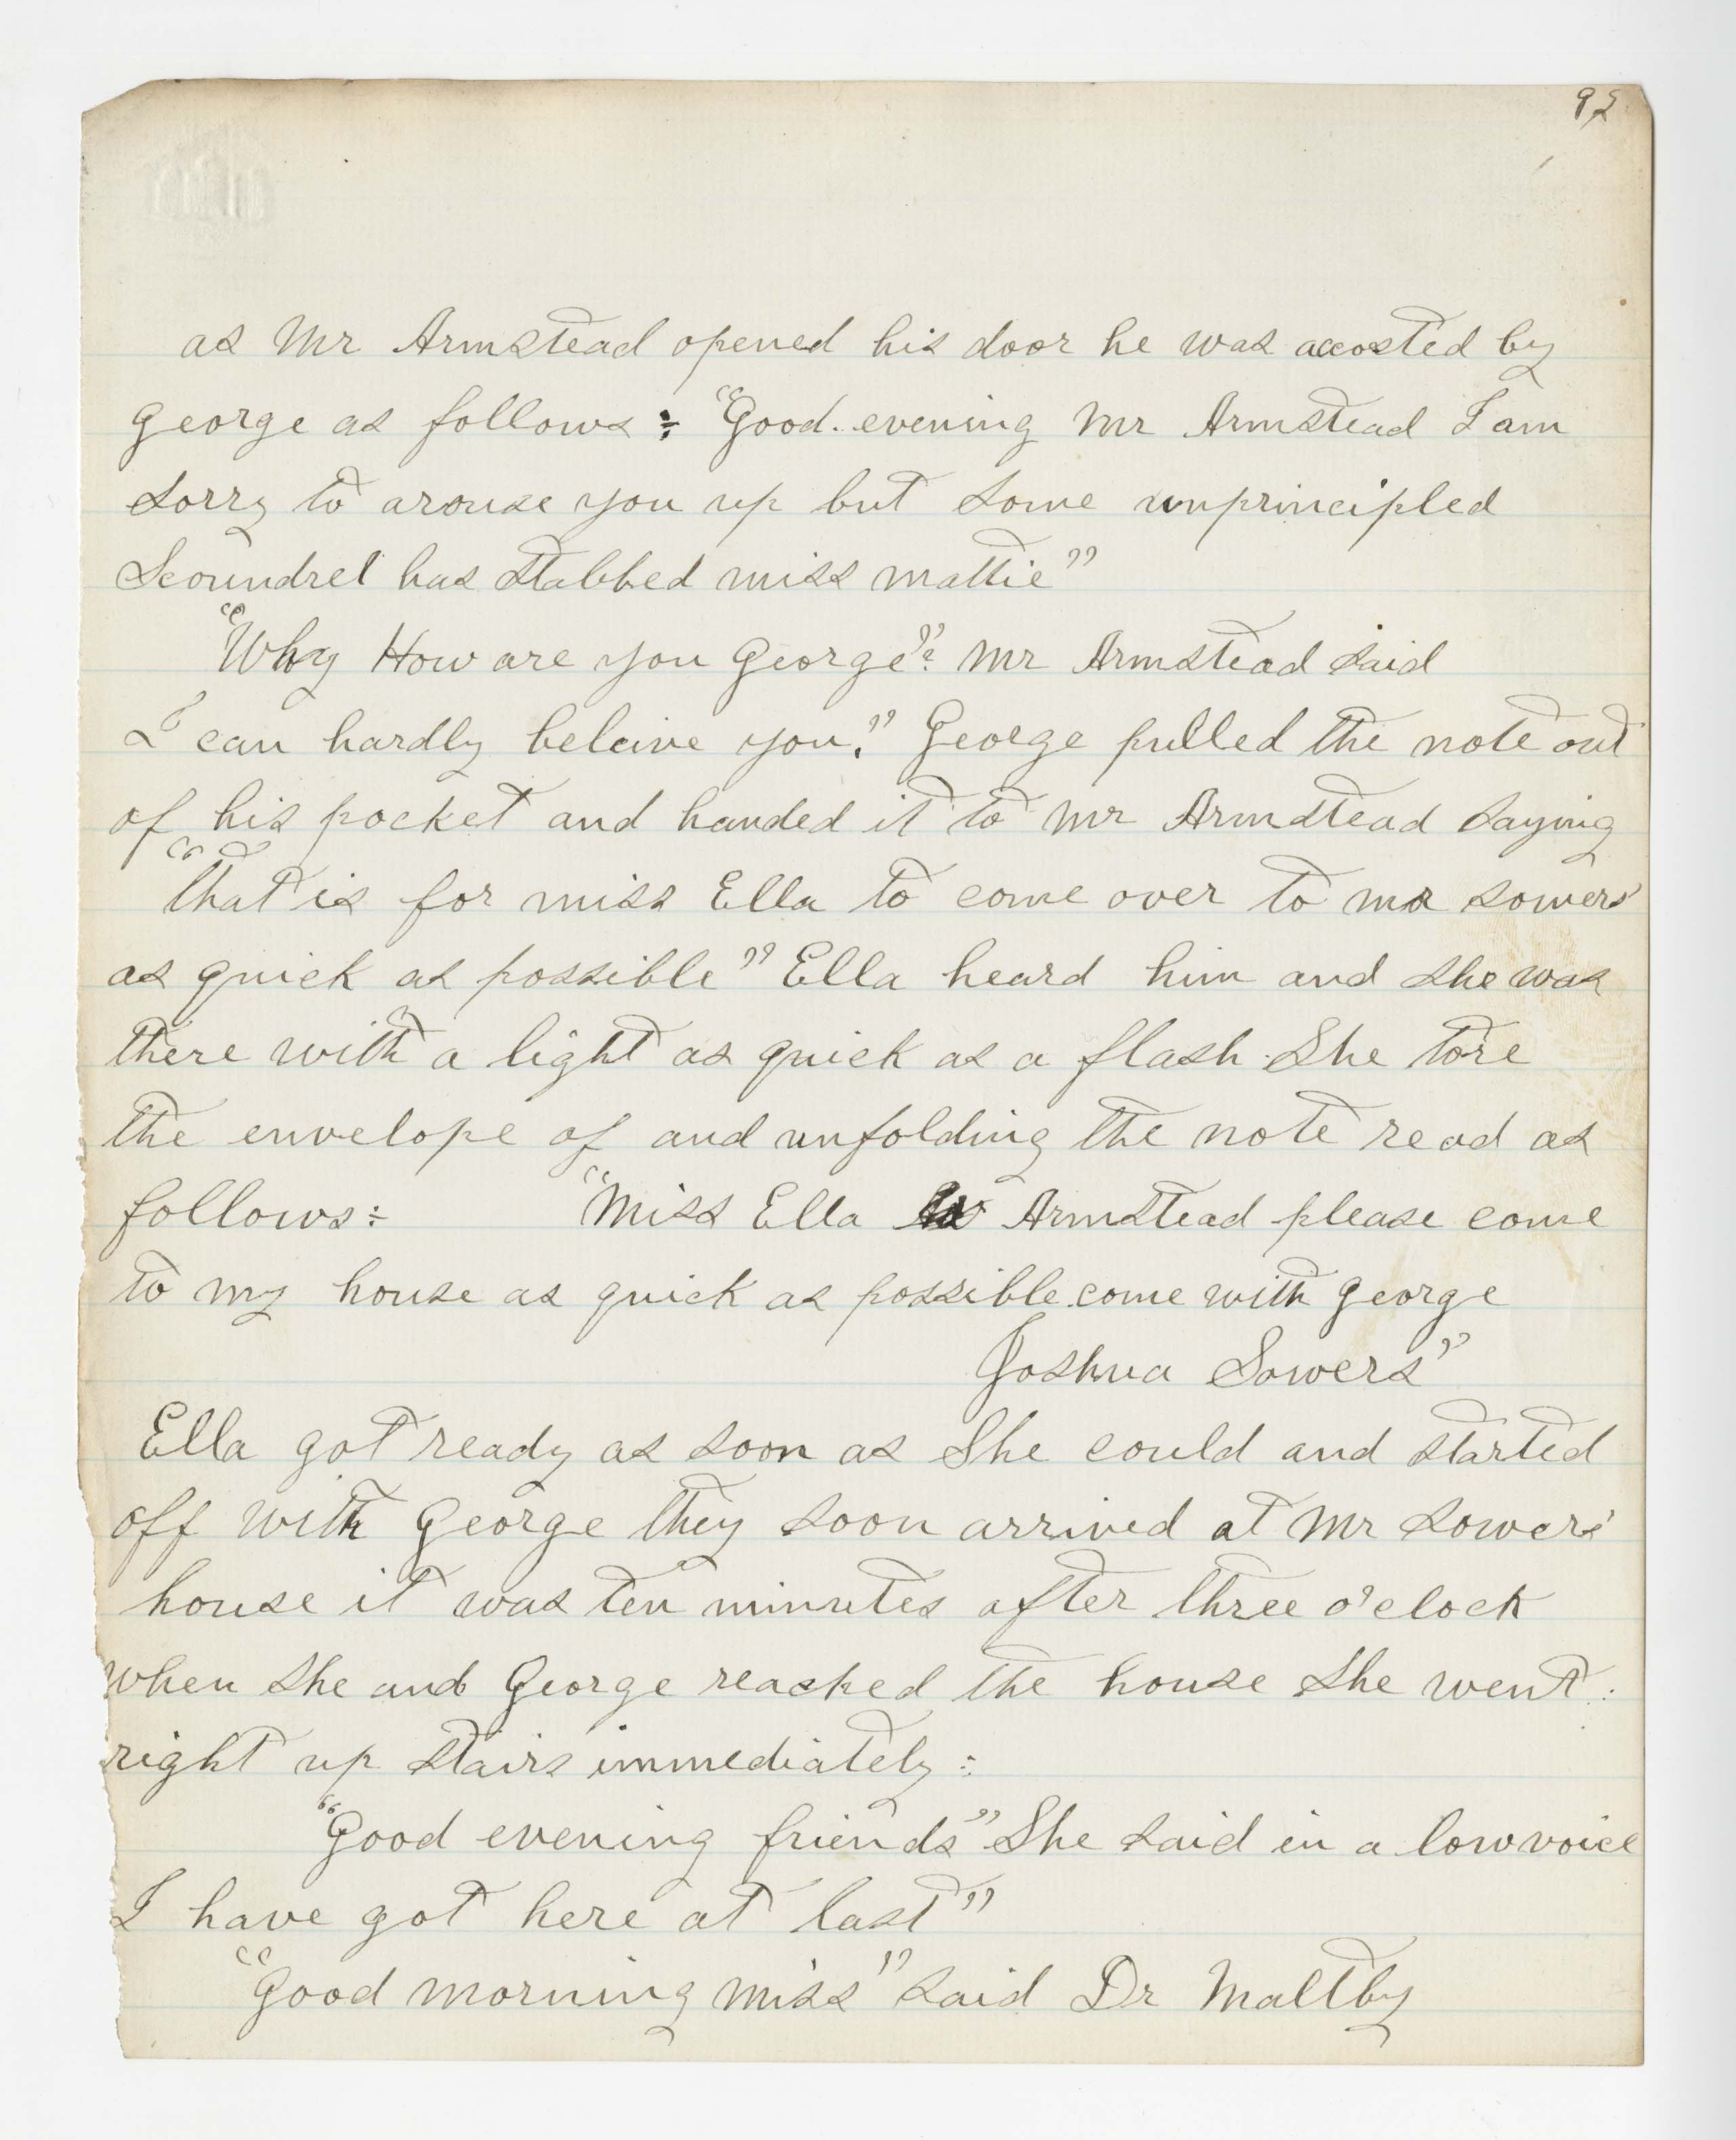 92
as Mr Armstead opened his door he was accosted by
George as follows÷ "Good evening Mr Armstead I am
Sorry to arouse you up but Some unprincipled
Scoundrel has Stabbed miss mattie"
"Why How are you George"? Mr Armstead Said
I can hardly beleive you," George pulled the note out
of his pocket and handed it to Mr Armstead Saying
"that is for miss Ella to come over to mr Sowers'
as quick as possible" Ella heard him and she was
there with a light as quick as a flash. She tore
the envelope of and unfolding the note read as
follows÷ "Miss Ella Armstead please come
to my house as quick as possible. come with George
Joshua Sowers"
Ella got ready as soon as She could and started
off with George they soon arrived at Mr Sowers'
house it was ten minutes after three o'clock
when she and George reached the house She went
right up stairs immediately÷
"Good evening friends" She said in a low voice
I have got here at last"
"Good morning Miss" Said Dr Maltby